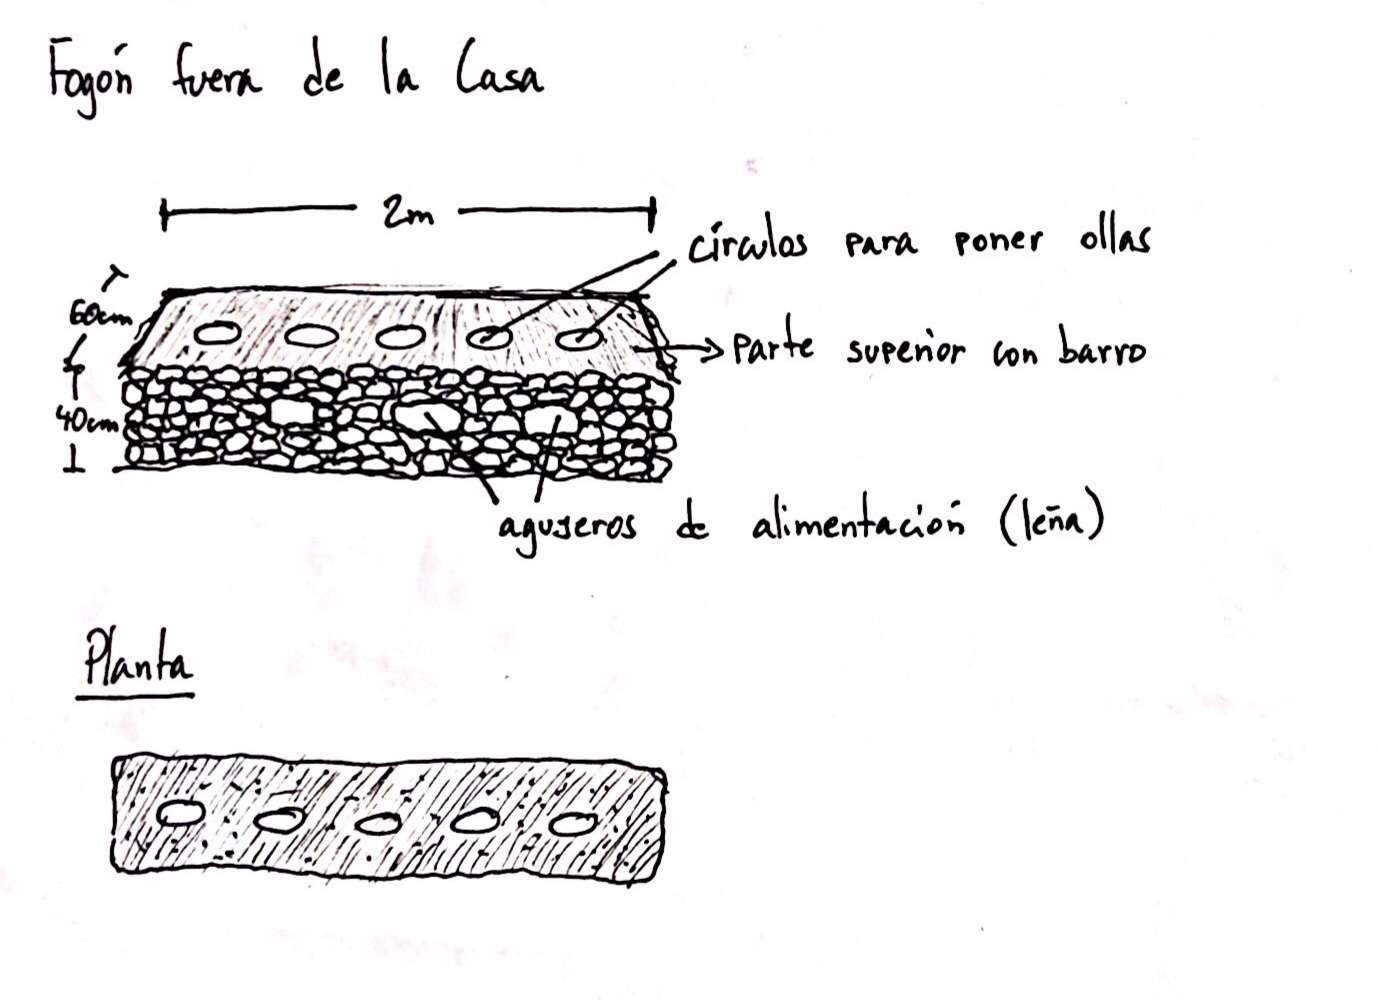 Fogón fuera de la Casa
2m
círculos para poner ollas
60cm
parte superior con barro
40cm
agujeros de alimentación (leña)
Planta